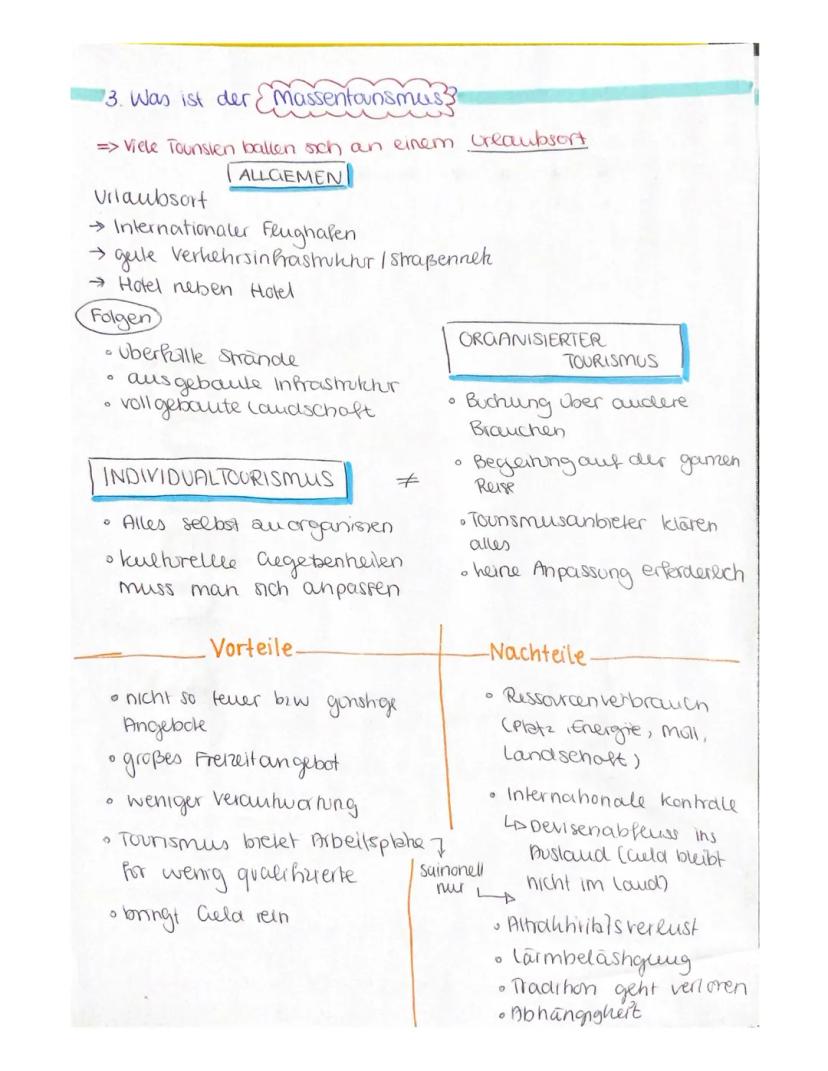 3. Was ist der Massentourismus?
=> Viele Touristen ballen sich an einem Urlaubsort
ALLGEMEN
Urlaubsort
→ Internationaler Flughafen
→ gute Verkehrsinfrastruktur / Straßennetz
→ Hotel neben Hotel
Folgen
• Überfüllte Strände
• ausgebaute Infrastruktur
• vollgebaute Landschaft
ORGANISIERTER
TOURISMUS
• Buchung über andere
Brauchen
• Begleitung auf der ganzen
Reise
• Tourismusanbieter klären
alles
• keine Anpassung erforderlich
INDIVIDUALTOURISMUS ≠
• Alles selbst zu organisieren
• kulturelle Gegebenheiten
muss man sich anpassen
Vorteile
• nicht so teuer bzw günstige
Angebote
• großes Freizeitangebot
• weniger Verantwortung
• Tourismus bietet Arbeitsplätze
für wenig qualifizierte
• bringt Geld rein
saisonell
nur
Nachteile
• Ressourcenverbrauch
(Platz, Energie, Müll,
Landschaft)
• Internationale Kontrolle
↳ Devisenabfluss ins
Ausland (Geld bleibt
nicht im Land)
• Attraktivitätsverlust
• Lärmbelästigung
• Tradition geht verloren
• Abhängigkeit